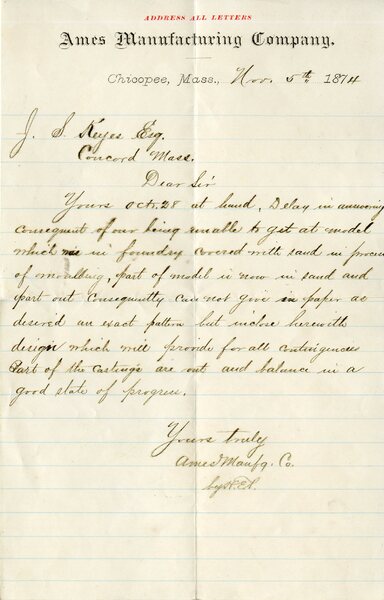 ADDRESS ALL LETTERS
Ames Manufacturing Company.
Chicopee, Mass., Nov. 5th 1874
J. S. Keyes Esq.
Concord Mass.
Dear Sir
Yours Oct. 28 at hand, Delay in answering
consequent of our being unable to get at model
which is in foundry covered with sand in process
of moulding, part of model is now in sand and
part out consequently can not give in paper as
desired an exact pattern but inclose herewith
design which will provide for all contingencies
Part of the castings are out and balance in a
good state of progress.
Yours truly
Ames Manfg. Co.
by